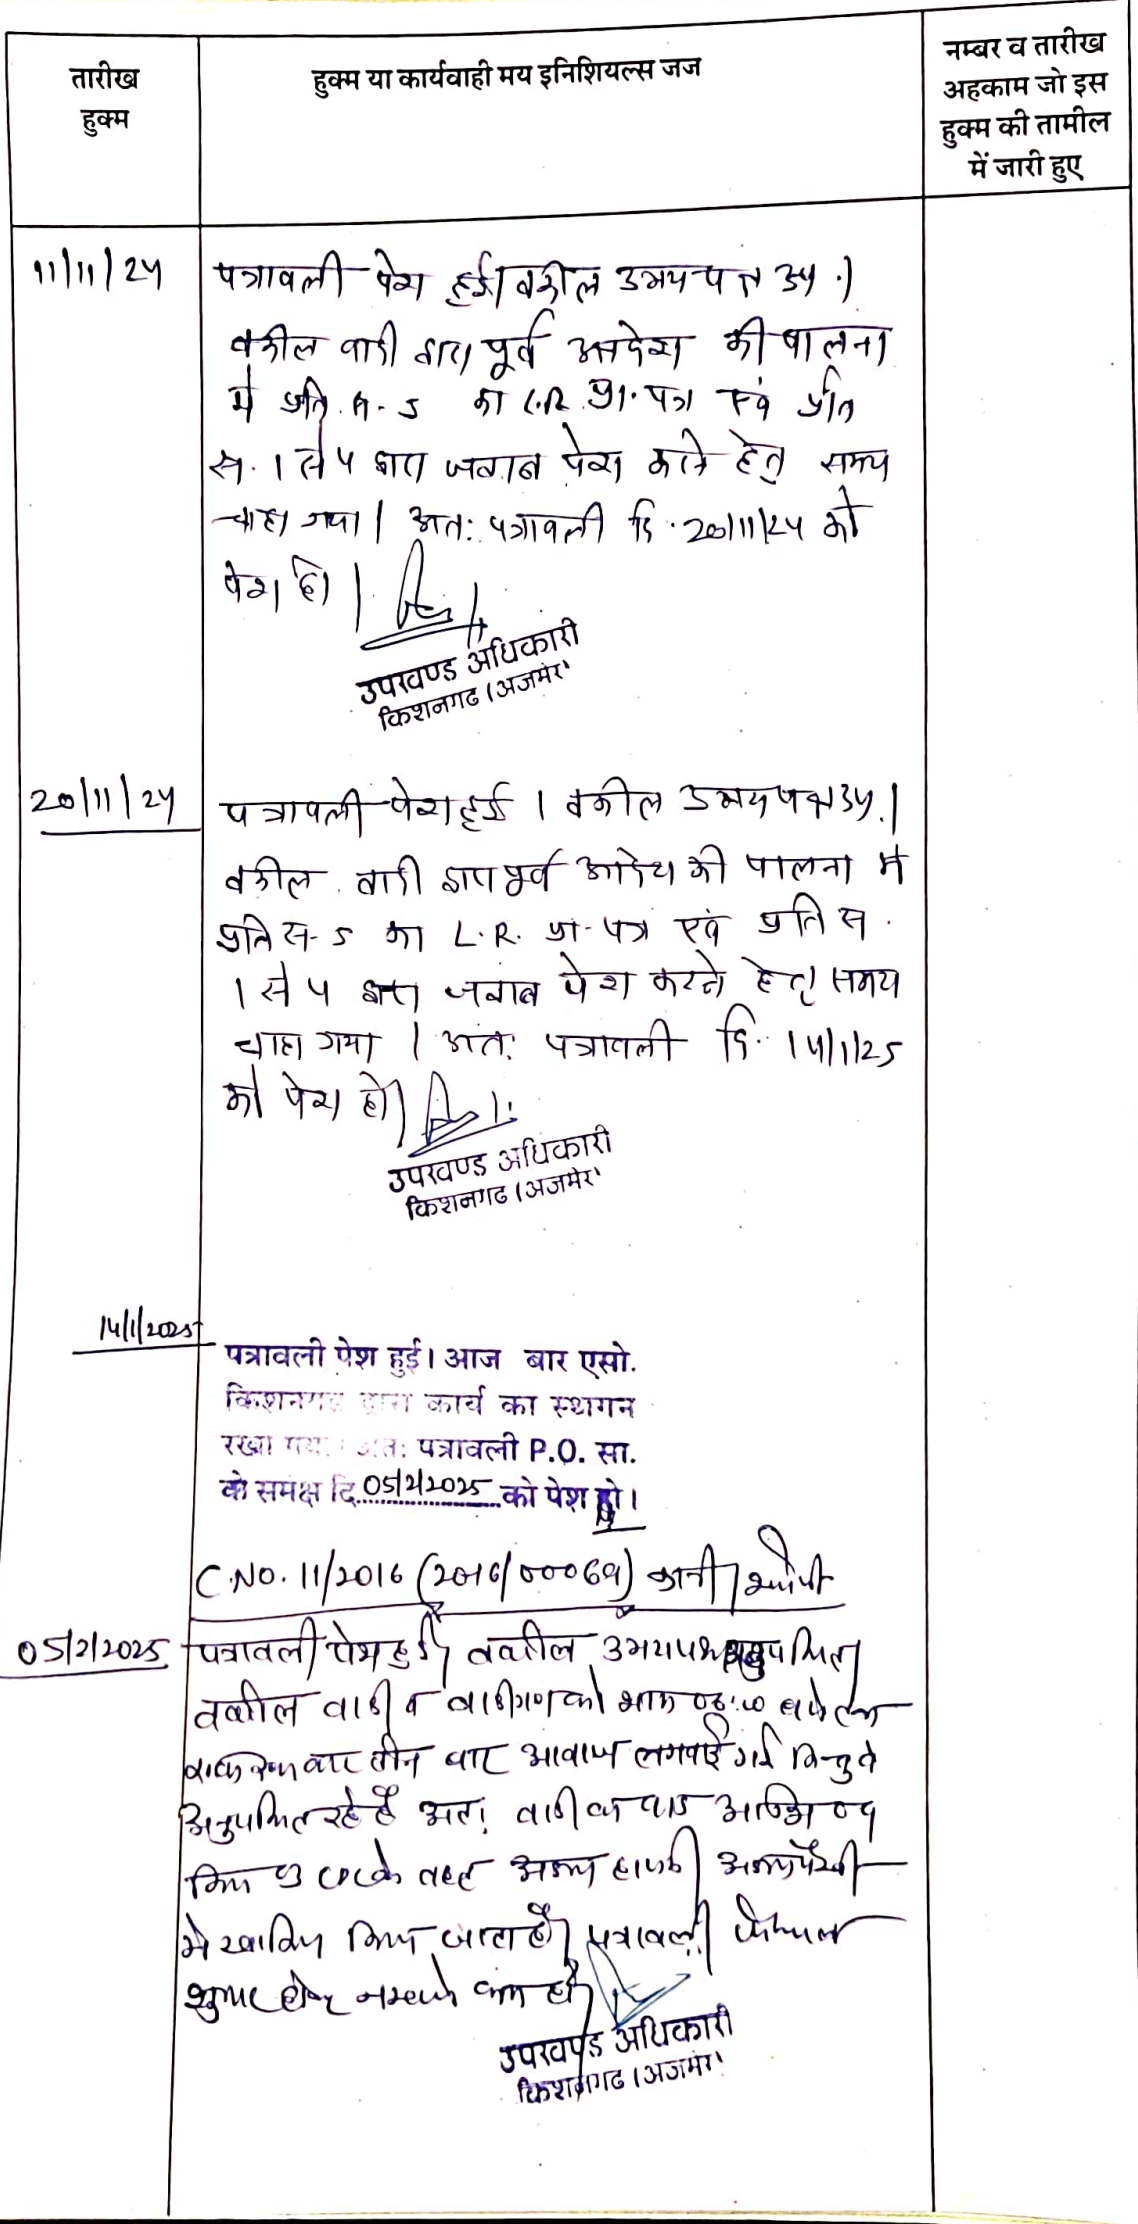 तारीख
हुक्म
हुक्म या कार्यवाही मय इनिशियल्स जज
नम्बर व तारीख
अहकाम जो इस
हुक्म की तामील
में जारी हुए
11/11/24
पत्रावली पेश हुई। वकील उभयपक्ष उप.।
वकील वादी द्वारा पूर्व आदेश की पालना
में प्रति.स.5 का L.R. प्रा.पत्र एवं प्रति
स. 1 से 4 द्वारा जवाब पेश करने हेतु समय
चाहा गया। अतः पत्रावली दि. 20/11/24 को
पेश हो।
उपखण्ड अधिकारी
किशनगढ (अजमेर)
20/11/24
पत्रावली पेश हुई। वकील उभयपक्ष उप.।
वकील वादी द्वारा पूर्व आदेश की पालना में
प्रति स. 5 का L.R. प्रा.पत्र एवं प्रति स.
1 से 4 द्वारा जवाब पेश करने हेतु समय
चाहा गया। अतः पत्रावली दि. 14/1/25
को पेश हो।
उपखण्ड अधिकारी
किशनगढ (अजमेर)
14/1/2025
पत्रावली पेश हुई। आज बार एसो.
किशनगढ द्वारा कार्य का स्थगन
रखा गया। अतः पत्रावली P.O. सा.
के समक्ष दि. 05/2/2025 को पेश हो।
C.NO. 11/2016 (2016/00069)
05/2/2025 पत्रावली पेश हुई। वकील उभयपक्ष अनुपस्थित।
वकील वादी व वादीगण को बजे तक
बार तीन बार आवाज लगवाई गई किन्तु वे
अनुपस्थित रहे है अतः वादी का वाद
के तहत अदम हाजरी अदम पैरवी
में खारिज किया जाता है। पत्रावली फैसल
शुमार होकर नम्बर से कम हो।
उपखण्ड अधिकारी
किशनगढ (अजमेर)